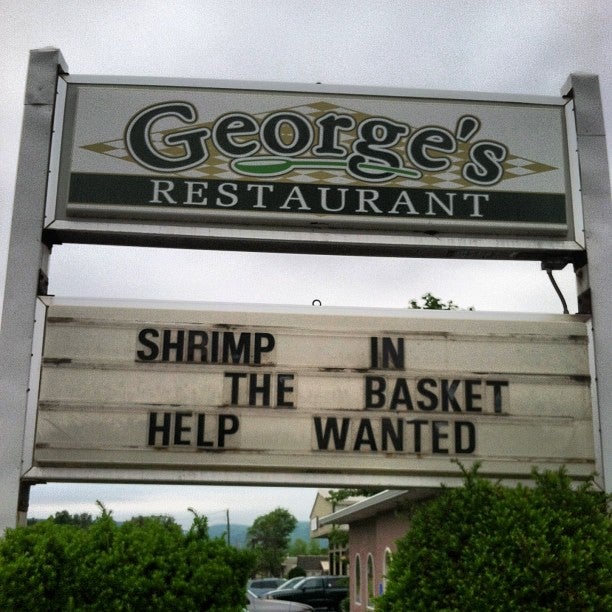 George's
RESTAURANT
SHRIMP IN
THE BASKET
HELP WANTED